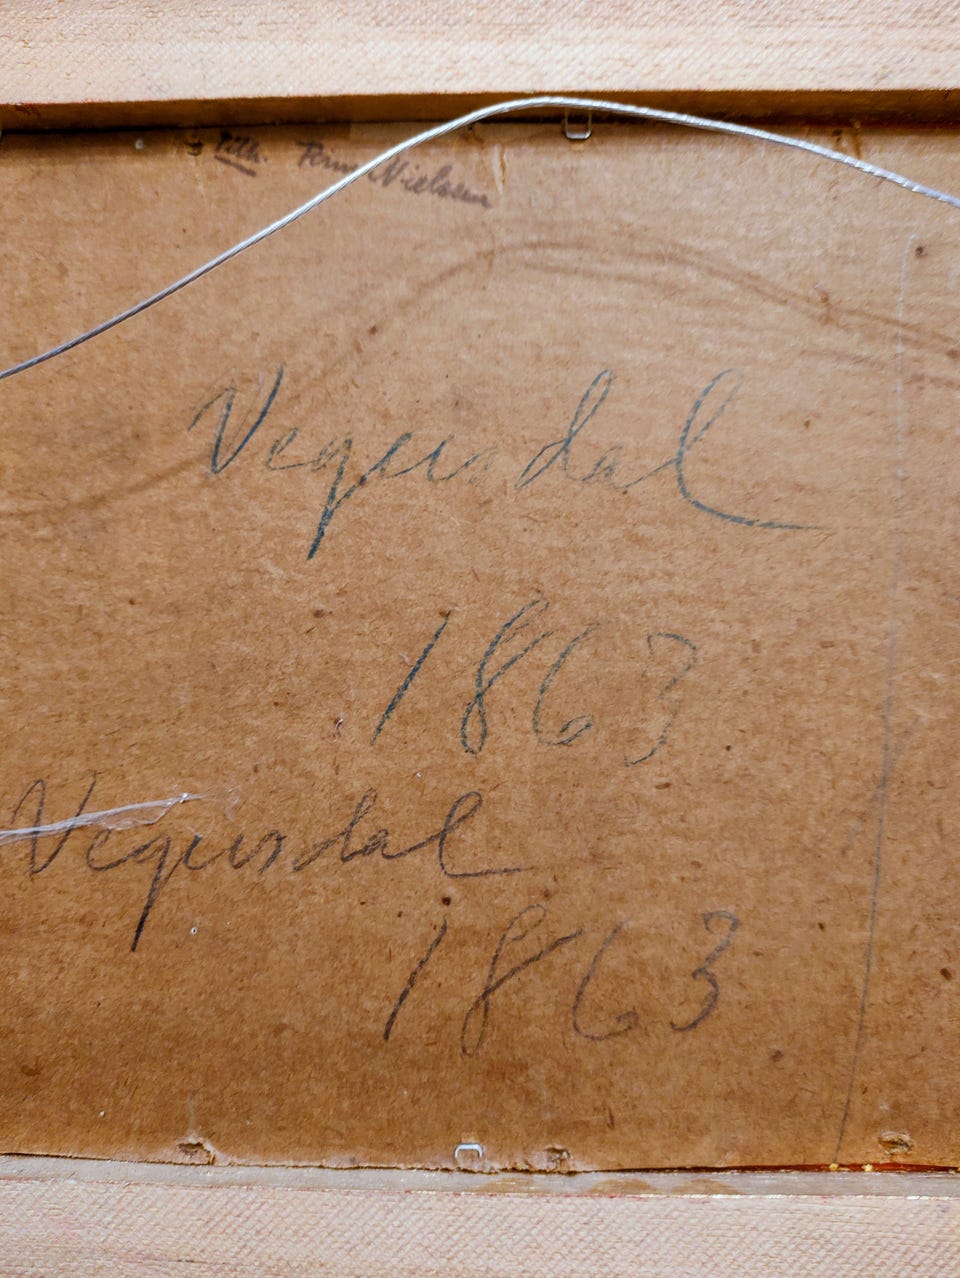 Tilh. Nielsen
Vequsdal
1863
Vequsdal
1863